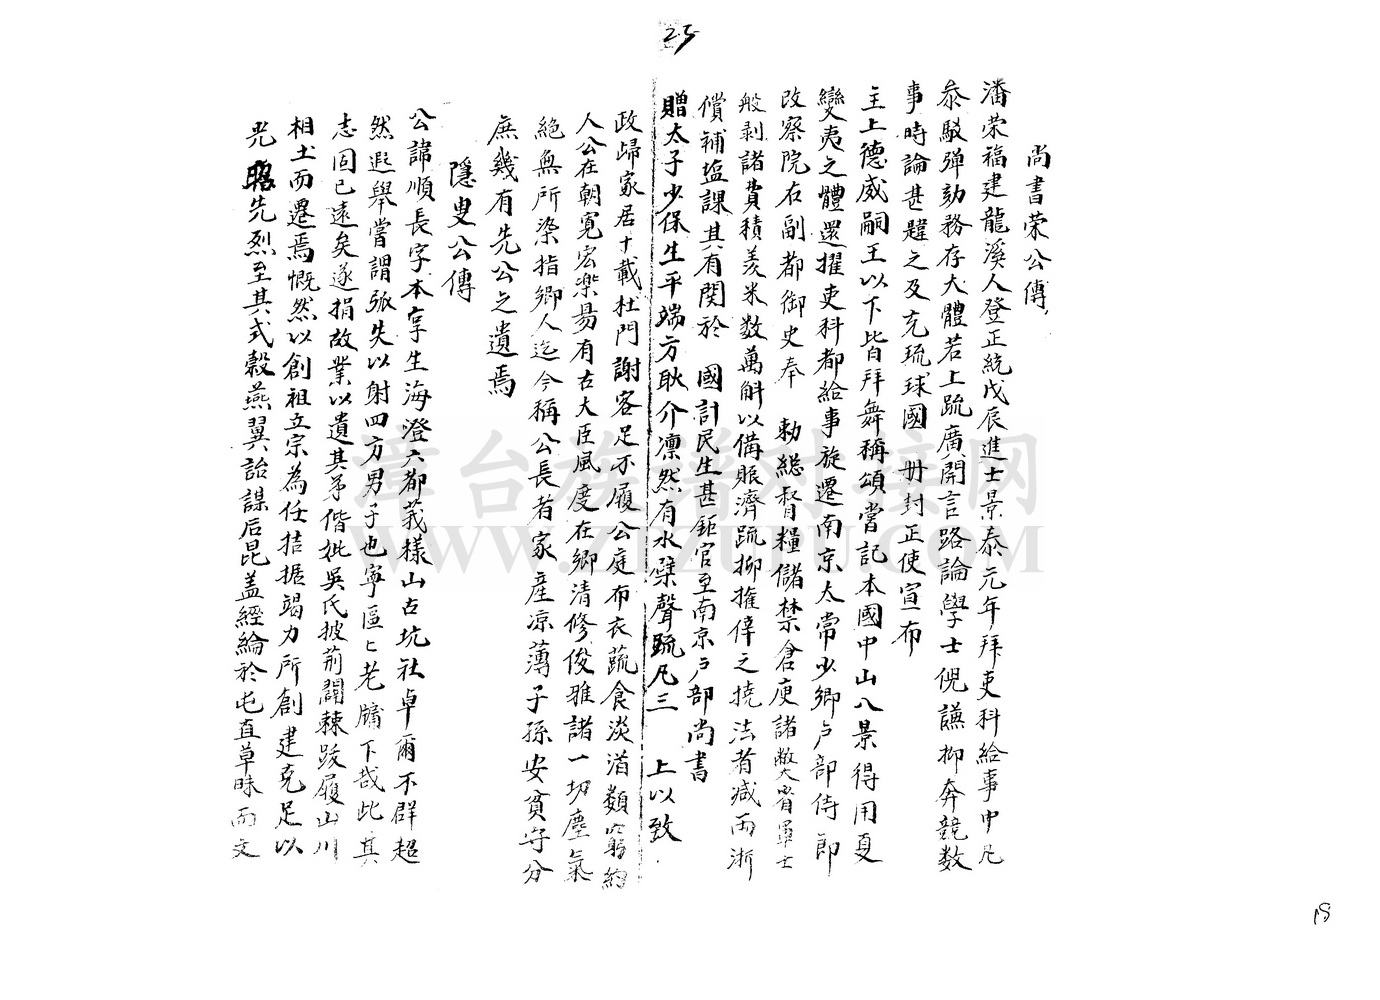 25
尚書荣公傳
潘荣福建龍溪人登正統戊辰進士景泰元年拜吏科給事中凡
叅駁弹劾務存大體若上疏廣開言路論學士倪謙抑奔競数
事時論甚韙之及充琉球國 册封正使宣布
主上德威嗣王以下皆拜舞稱頌嘗記本國中山八景得用夏
變夷之體還擢吏科都給事旋遷南京太常少卿户部侍郎
改察院右副都御史奉 勅總督糧儲禁倉庾諸弊省軍士
般剥諸費積羡米数萬斛以備賑濟疏抑搉倖之撓法者减两浙
償補塩課其有関於 國計民生甚鉅官至南京户部尚書
贈太子少保生平端方耿介凛然有水檗聲疏凡三 上以致
政歸家居十載杜門謝客足不履公庭布衣蔬食淡滋類窮約
人公在朝寛宏楽昜有古大臣風度在鄉清修俊雅諸一切塵氣
絕無所染指鄉人迄今稱公長者家産凉薄子孫安貧守分
庶幾有先公之遺焉
隱叟公傳
公諱順長字本享生海澄六都莪様山古坑社卓爾不群超
然遐舉嘗謂弧失以射四方男子也寧區匕老牖下哉此其
志固已遠矣遂捐故業以遺其苐偕妣吳氏披荊闢棘跋履山川
相土而遷焉慨然以創祖立宗為任拮据竭力所創建克足以
光昭先烈至其式穀燕翼詒謀后昆盖經綸於屯直草昧而文
18
章台族谱对接网
WWW.ZTZUPU.COM